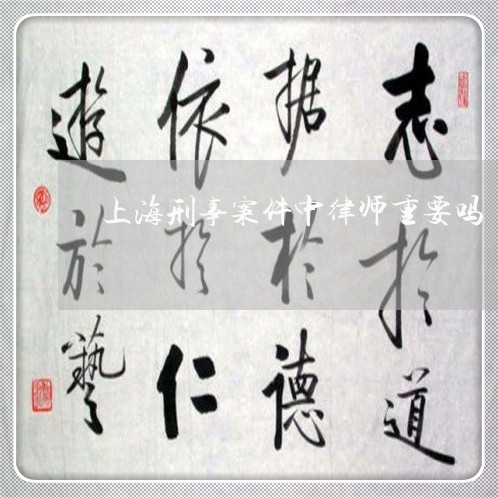 志於道
据於德
依於仁
遊於藝
上海刑事案件中律师重要吗